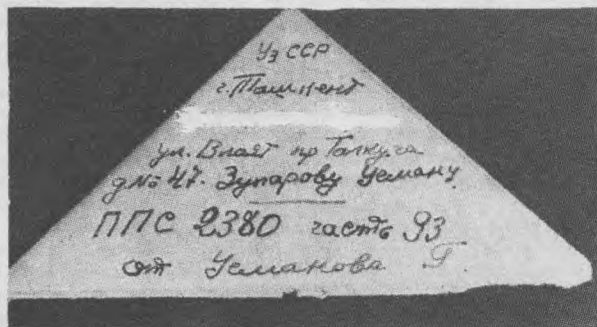 Уз ССР
г. Ташкент
ул. Влаят пр Талкуча
д № 47. Зупарову Усману
ППС 2380 часть 93
от Усманова Г